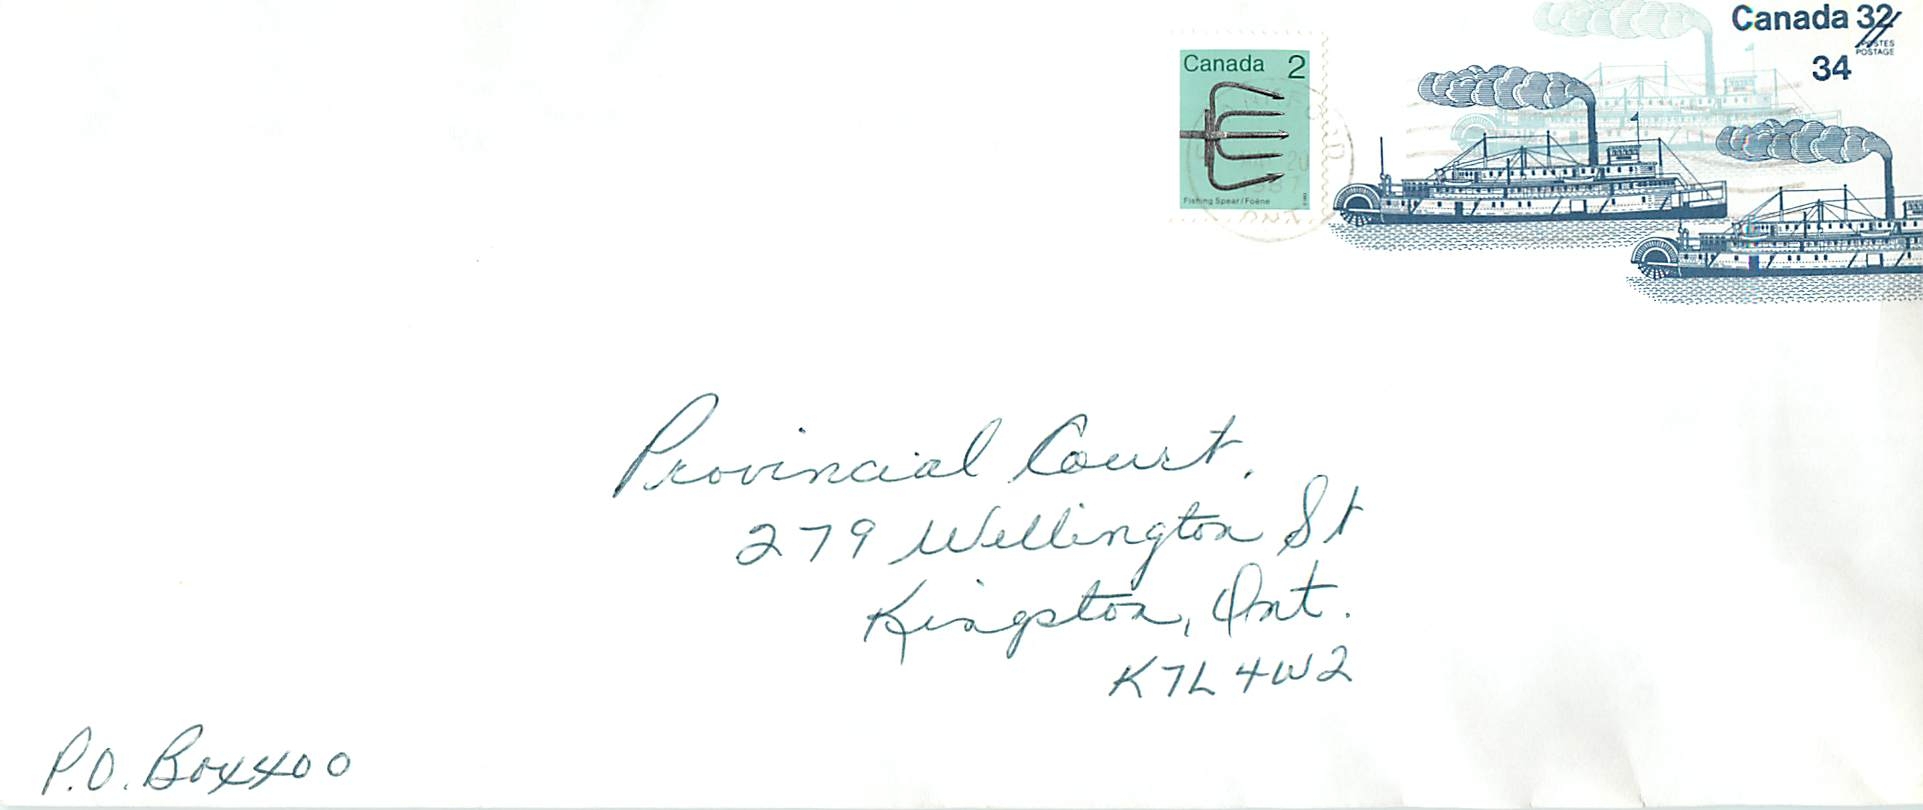 Canada 32
POSTES
POSTAGE
34
Canada 2
Fishing Spear / Foëne
20
1987
ONT
Provincial Court.
279 Wellington St
Kingston, Ont.
K7L 4W2
P.O. Box 400